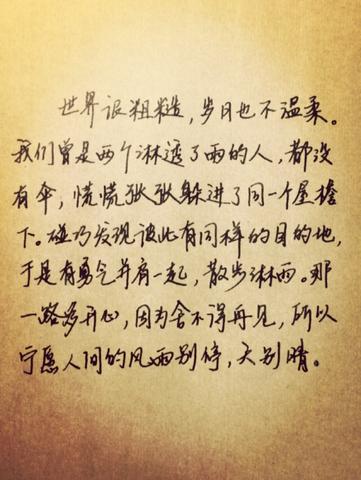 世界很粗糙，岁月也不温柔。
我们曾是两个淋透了雨的人，都没
有伞，慌慌张张躲进了同一个屋檐
下。碰巧发现彼此有同样的目的地，
于是有勇气并肩一起，散步淋雨。那
一路多开心，因为舍不得再见，所以
宁愿人间的风雨别停，天别晴。